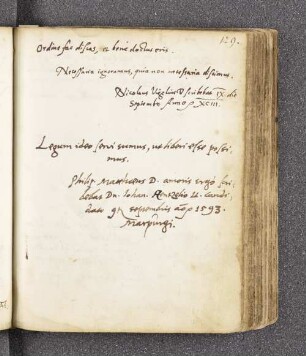 129.
Ordine fac discas, et bene doctus eris.
Necessaria ignoramus, quia non necessaria discimus.
Nicolaus Vigelius D scribebat IX. die
Septembr. Anno XCIII.
Legum ideo servi sumus, ut liberi esse possi-
mus.
Philip. Matthaeus D. amoris ergo scri-
debat Dn. Johan. LL. candi-
dato 9 Septembris aō 1593.
Marpurgi.